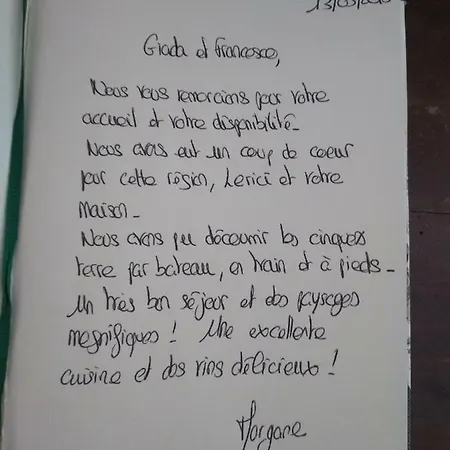 13/05/20
Giada et Francesco,
Nous vous remercions pour votre
accueil et votre disponibilité.
Nous avons eut un coup de coeur
pour cette région, Lerici et votre
maison.
Nous avons pu découvrir les cinques
terre par bateau, en train et à pieds.
Un très bon séjour et des paysages
magnifiques ! Une excellente
cuisine et des vins délicieux !
Morgane